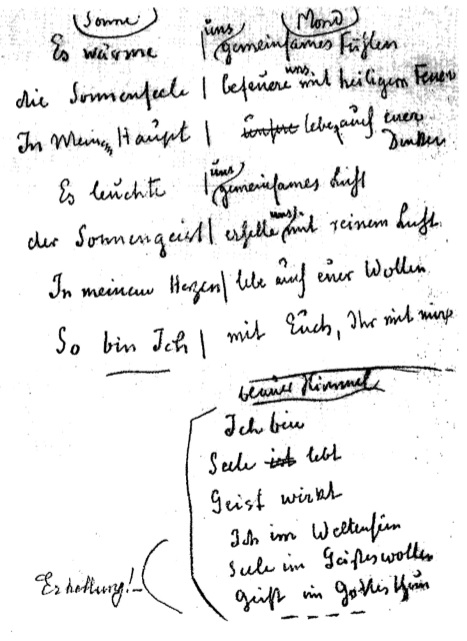 Sonne Mond
Es wärme | uns gemeinsames Fühlen
die Sonnenseele | befeuere uns mit heiligem Feuer
In Meinem Haupt | lebe auf euer
Denken
Es leuchte | uns gemeinsames Licht
der Sonnengeist | erhelle uns mit reinem Licht.
In meinem Herzen | lebe auf euer Wollen
So bin Ich | mit Euch, Ihr mit mir
blauer Himmel
Ich bin
Seele ist lebt
Geist wirkt
Ich im Weltensein
Seele im Geisteswollen
Geist im Gottestun
Erhaltung! –